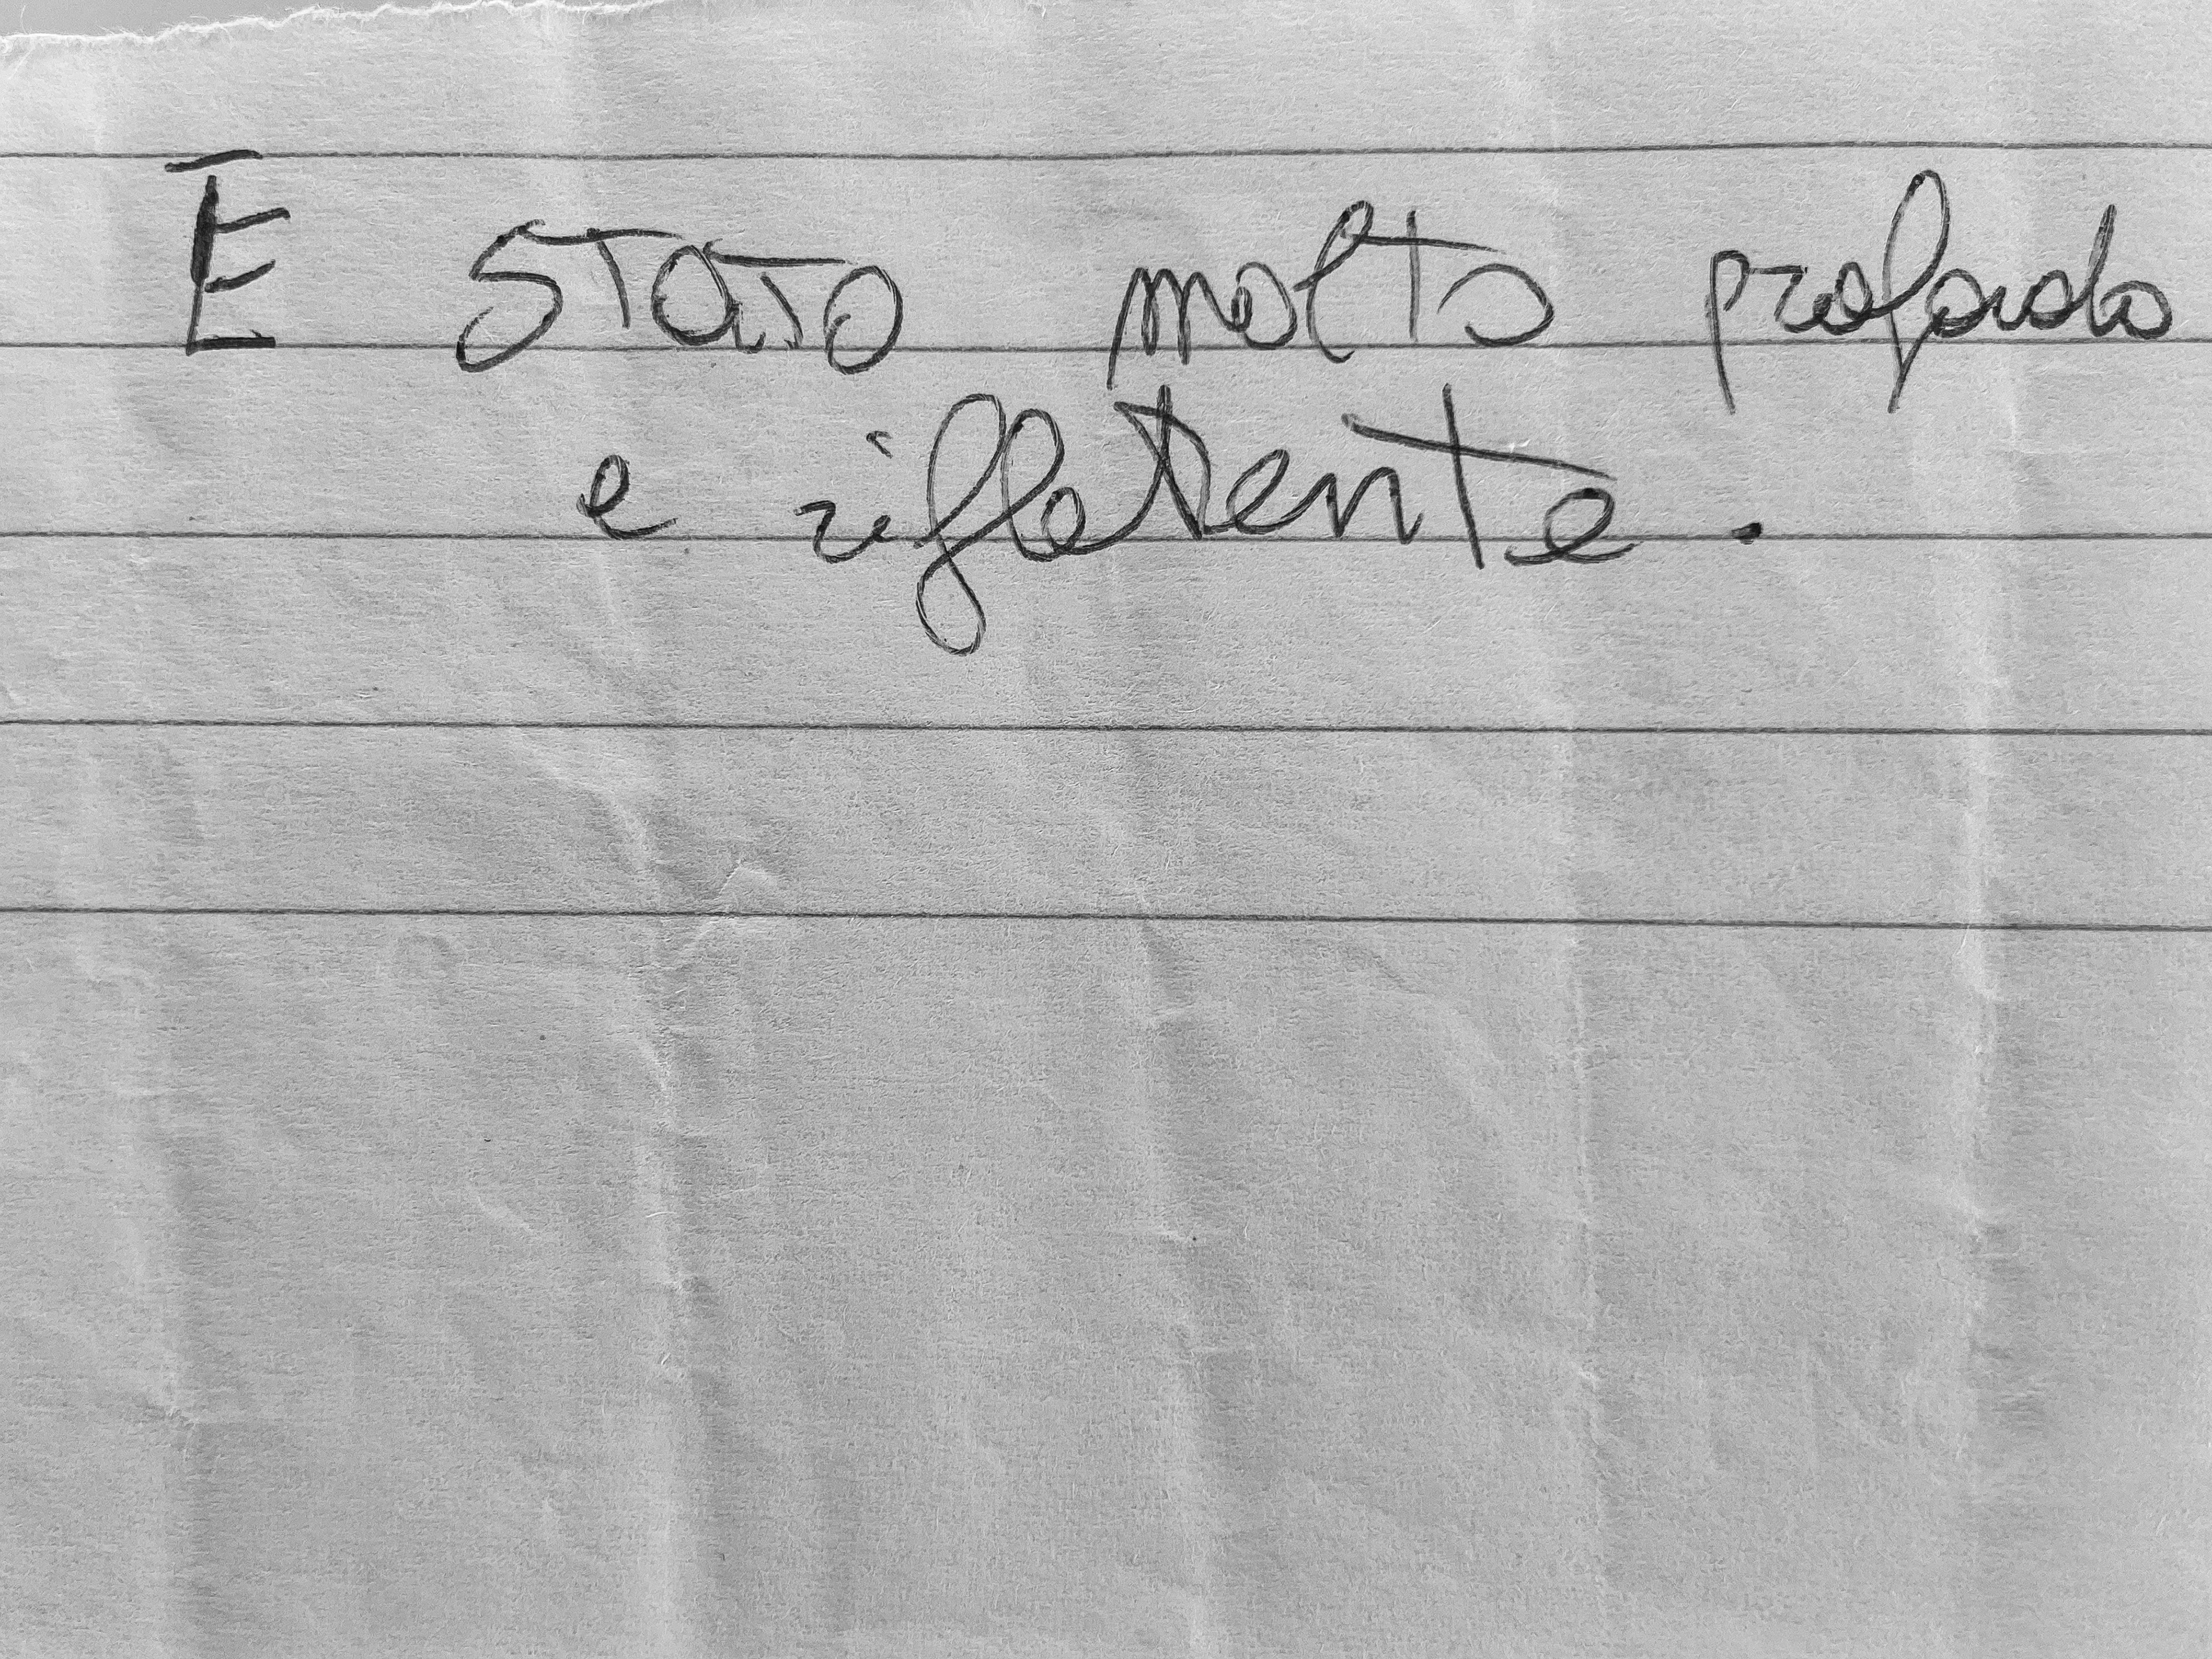 È stato molto profondo
e rifletente.